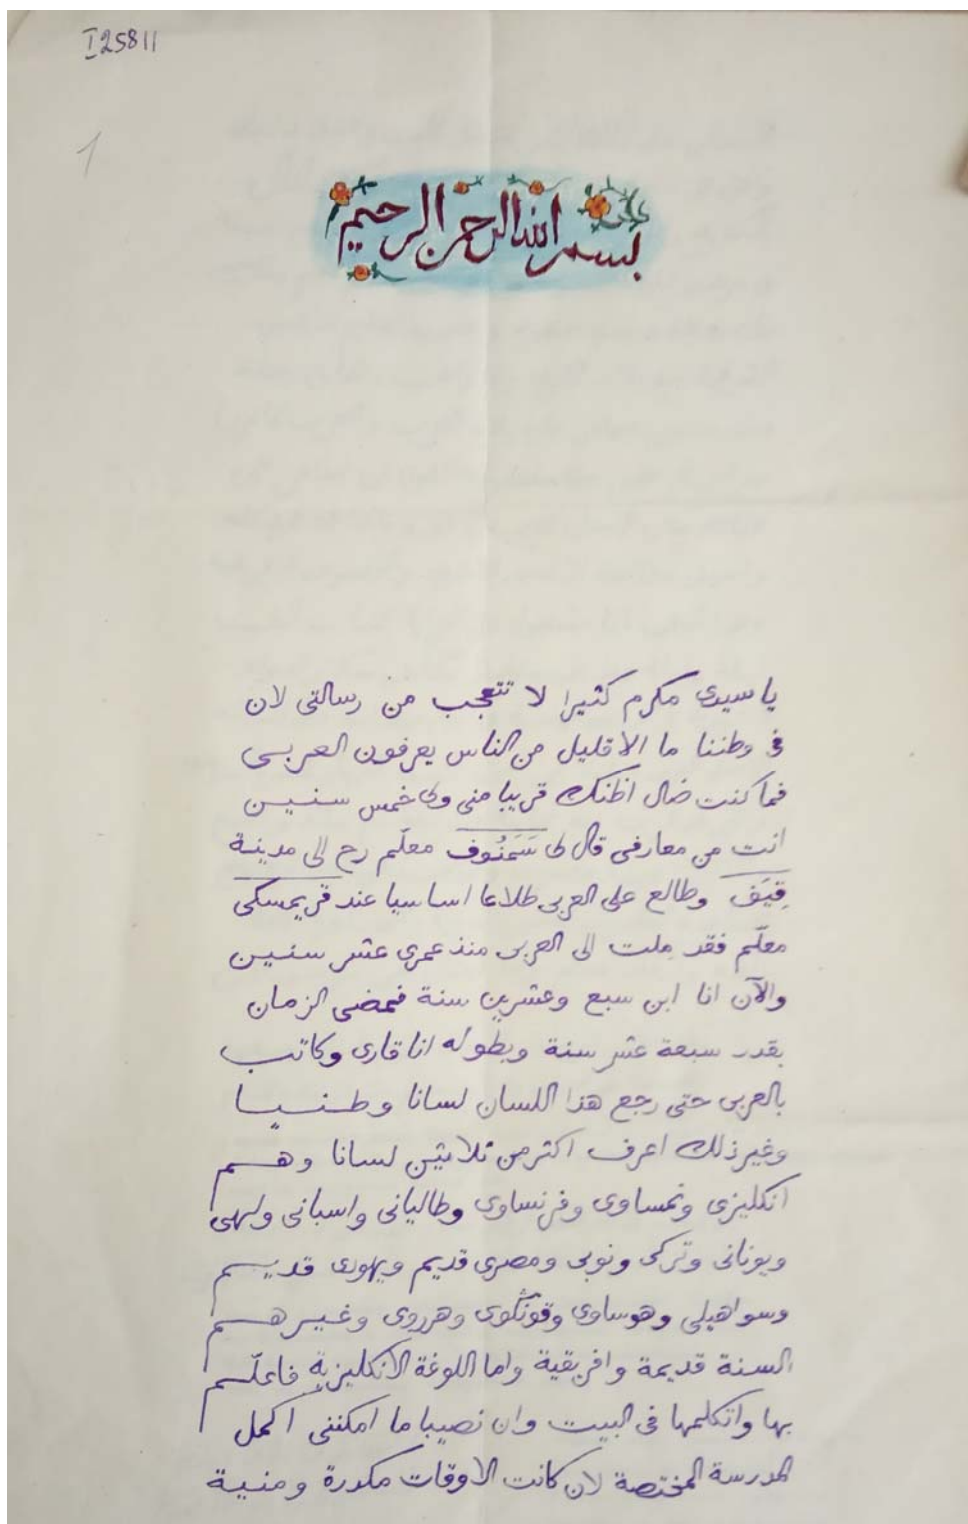 I 25811
1
بسم الله الرحمن الرحيم
يا سيدى مكرم كثيرا لا تتعجب من رسالتى لان
فى وطننا ما الا قليل من الناس يعرفون العربى
فما كنت ضال اظنك قريبا منى ولى خمس سنين
انت من معارفى قال لى سَمَنُوف معلّم رح الى مدينة
قِيَف وطالع على العربى طلاعا اساسيا عند قريمسكى
معلّم فقد ملت الى العربى منذ عمرى عشر سنين
والآن انا ابن سبع وعشرين سنة فمضى الزمان
بقدر سبعة عشر سنة وبطوله انا قارى وكاتب
بالعربى حتى رجع هذا اللسان لسانا وطنيا
وغير ذلك اعرف اكثر من ثلاثين لسانا وهم
انكليزى ونمساوى وفرنساوى وطاليانى واسبانى ولهى
ويونانى وتركى ونوبى ومصرى قديم ويهودى قديم
وسواهيلى وهوساوى وقونگوى وهرروى وغيرهم
السنة قديمة وافريقية واما اللوغة الانكليزية فاعلّم
بها واتكلمها فى البيت وان نصيبا ما امكننى اكمل
المدرسة المختصة لان كانت الاوقات مكدرة ومنية